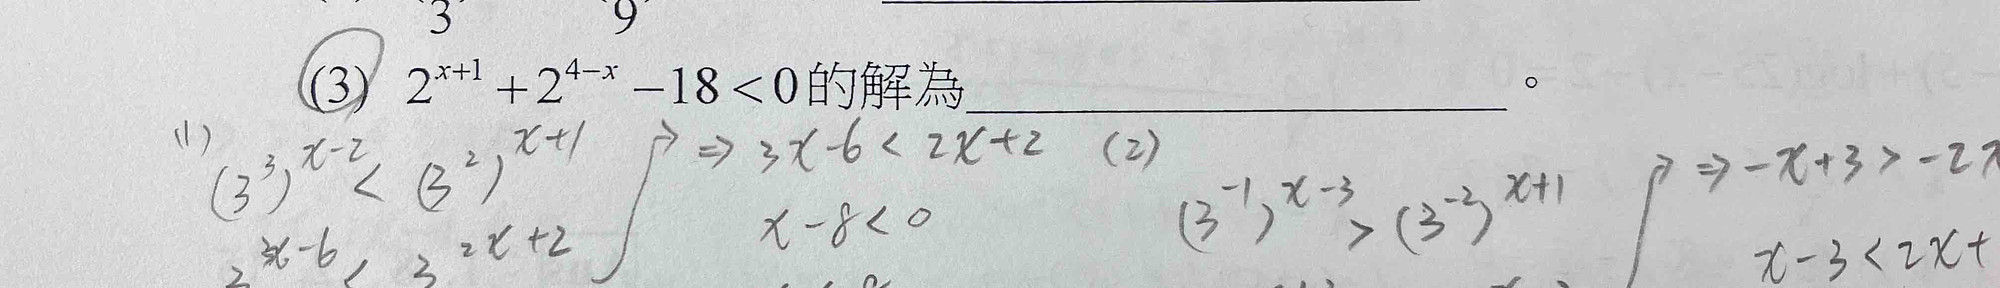 3 9
(3) 2^{x+1} + 2^{4-x} - 18 < 0 的解為__________。
(1) (3^3)^{x-2} < (3^2)^{x+1}
3^{3x-6} < 3^{2x+2}
⇒ 3x-6 < 2x+2
x-8 < 0
(2) (3^{-1})^{x-3} > (3^{-2})^{x+1}
⇒ -x+3 > -2x
x-3 < 2x+